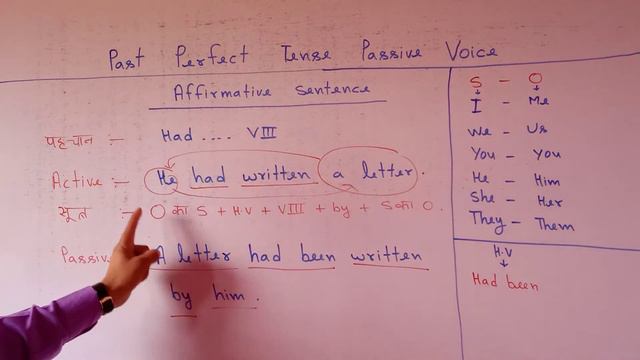 Past Perfect Tense Passive Voice
Affirmative sentence
पहचान :- Had .... VIII
Active :- He had written a letter.
सूत्र :- O का S + H.V + VIII + by + S का O.
Passive A letter had been written
by him.
S - O
I - Me
We - Us
You - You
He - Him
She - Her
They - Them
H.V
Had been